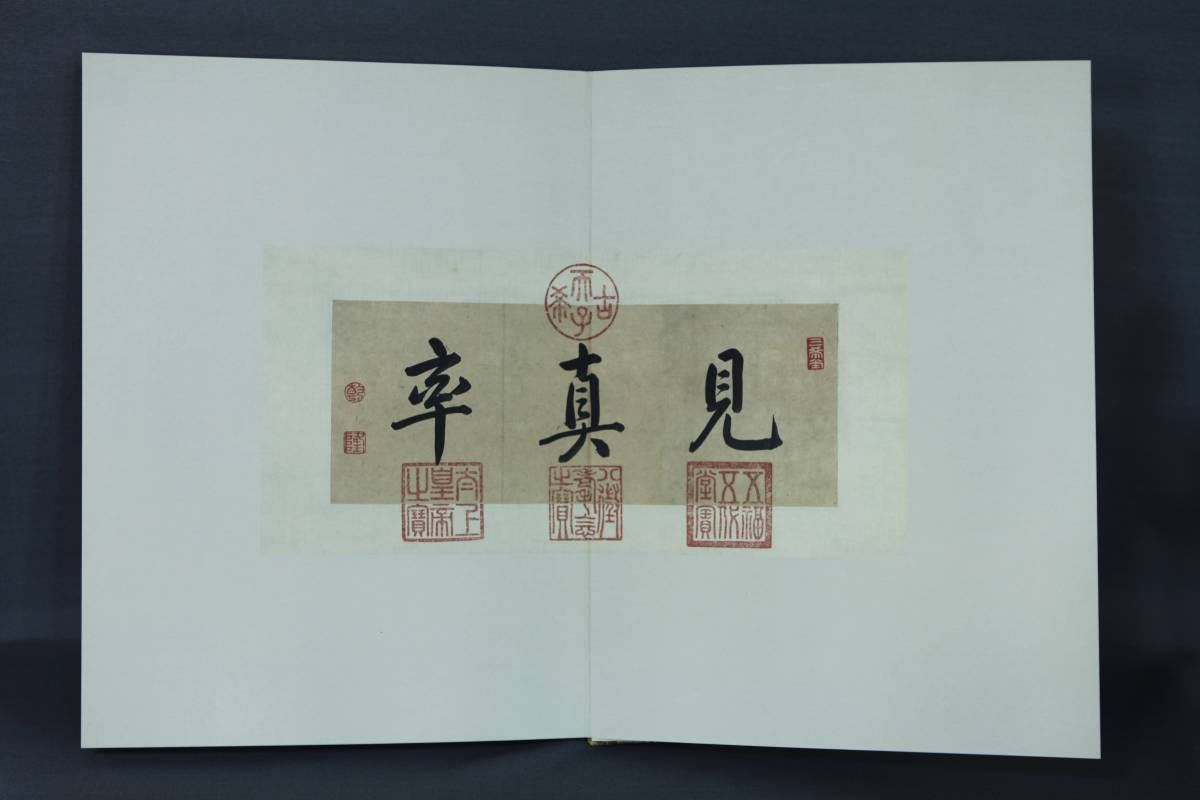 見真率
三希堂
古希天子
乾
隆
五福五代堂寶
八徵耄念之寶
太上皇帝之寶